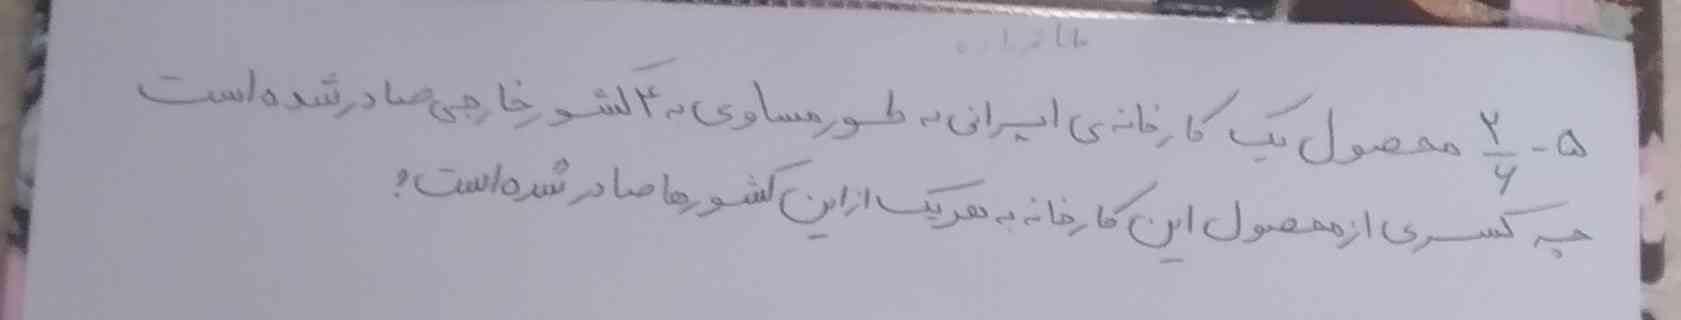 ۵- ۲/۶ محصول یک کارخانه ی ایرانی به طور مساوی به ۴ کشور خارجی صادر شده است
چه کسری از محصول این کارخانه به هر یک از این کشورها صادر شده است؟